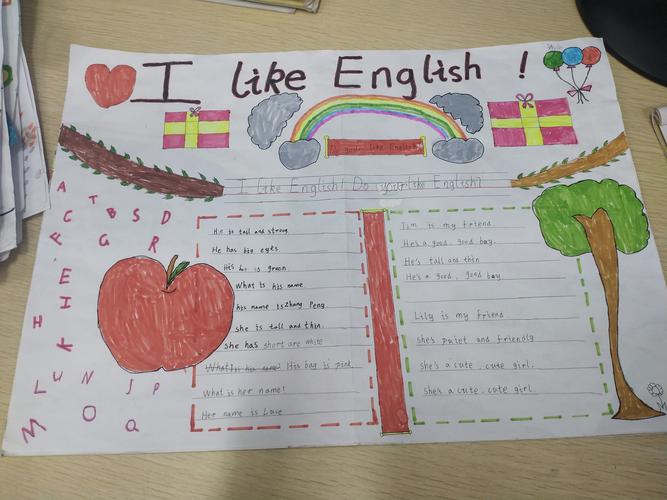 I like English !
Do you like English?
I like English! Do you like English?
A
T
C
B
S
D
F
G
R
E
I
H
K
L
U
N
J
P
M
O
Q
He is tall and strong
He has big eyes
His is green
What is his name
his name is Zhang Peng
she is tall and thin.
she has short are white
What is his name? His bag is pink
What is her name!
Her name is
Tim is my friend.
He's a good, good boy.
He's tall and thin
He's a good, good boy
Lily is my friend
she's and friendly
she's a cute, cute girl.
she's a cute, cute girl.